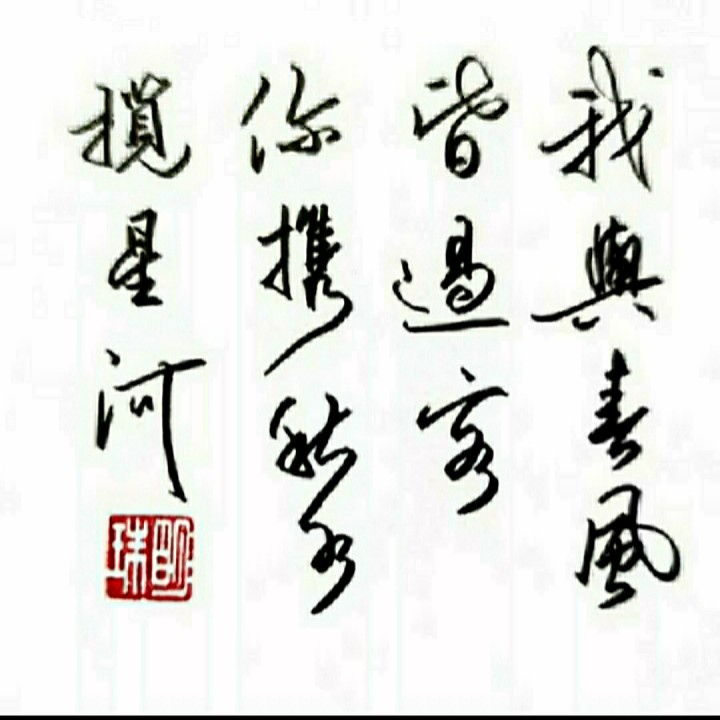 我與春風
皆過客
你携秋水
攬星河